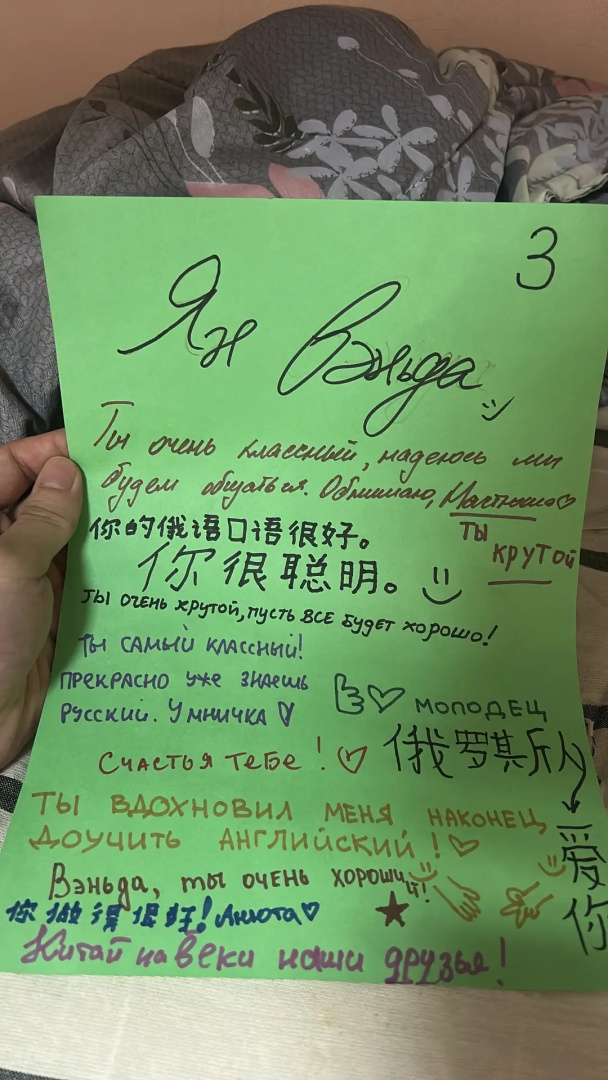 3
Ян Вэньда
Ты очень классный, надеюсь мы
будем общаться. Обнимаю, Настюша
ты
крутой
你的俄语口语很好。
你很聪明。
ТЫ ОЧЕНЬ КРУТОЙ, ПУСТЬ ВСЕ БУДЕТ ХОРОШО!
ТЫ САМЫЙ КЛАССНЫЙ!
ПРЕКРАСНО УЖЕ ЗНАЕШЬ
РУССКИЙ. УМНИЧКА
МОЛОДЕЦ
СЧАСТЬЯ ТЕБЕ!
俄罗斯人
爱你
ТЫ ВДОХНОВИЛ МЕНЯ НАКОНЕЦ
ДОУЧИТЬ АНГЛИЙСКИЙ!
Вэньда, ты очень хороший!
你做得很好! Анюта
Китай навеки наши друзья!